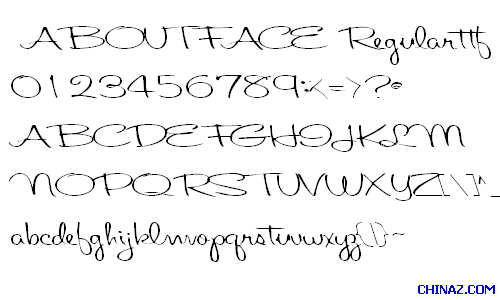 ABOUTFACE Regularttf
0123456789:;<=>?@
ABCDEFGHIJKLM
NOPQRSTUVWXYZ[\]^_
abcdefghijklmnopqrstuvwxyz{|}~
CHINAZ.COM